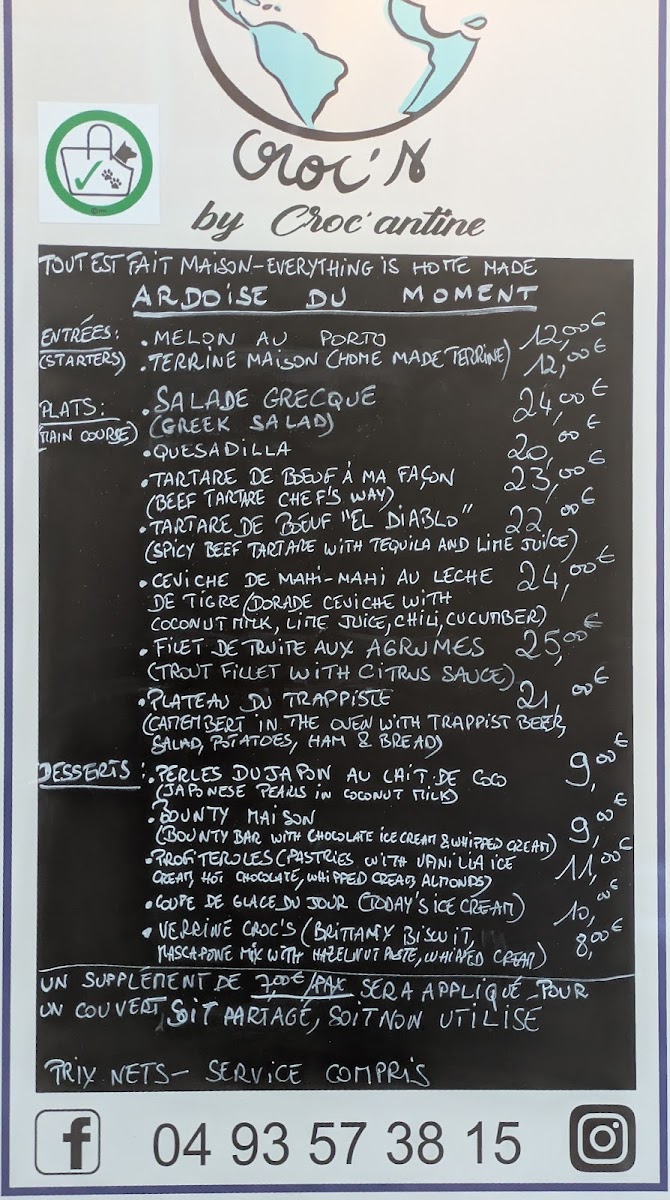 Croc'N
by Croc'antine
TOUT EST FAIT MAISON-EVERYTHING IS HOME MADE
ARDOISE DU MOMENT
ENTRÉES: • MELON AU PORTO 12,00€
(STARTERS) • TERRINE MAISON (HOME MADE TERRINE) 12,00€
PLATS: • SALADE GRECQUE 24,00€
(MAIN COURSE) (GREEK SALAD)
• QUESADILLA 20,00€
• TARTARE DE BOEUF À MA FAÇON 23,00€
(BEEF TARTARE CHEF'S WAY)
• TARTARE DE BOEUF "EL DIABLO" 22,00€
(SPICY BEEF TARTARE WITH TEQUILA AND LIME JUICE)
• CEVICHE DE MAHI-MAHI AU LECHE 24,00€
DE TIGRE (DORADE CEVICHE WITH
COCONUT MILK, LIME JUICE, CHILI, CUCUMBER)
• FILET DE TRUITE AUX AGRUMES 25,00€
(TROUT FILLET WITH CITRUS SAUCE)
• PLATEAU DU TRAPPISTE 21,00€
(CAMEMBERT IN THE OVEN WITH TRAPPIST BEER,
SALAD, POTATOES, HAM & BREAD)
DESSERTS: • PERLES DU JAPON AU LAIT DE COCO 9,00€
(JAPONESE PEARLS IN COCONUT MILK)
• BOUNTY MAISON 9,00€
(BOUNTY BAR WITH CHOCOLATE ICE CREAM & WHIPPED CREAM)
• PROFITEROLES (PASTRIES WITH VANILLA ICE 11,00€
CREAM, HOT CHOCOLATE, WHIPPED CREAM, ALMONDS)
• COUPE DE GLACE DU JOUR (TODAY'S ICE CREAM) 10,00€
• VERRINE CROC'S (BRITTANY BISCUIT, 8,00€
MASCAPONE MIX WITH HAZELNUT PASTE, WHIPPED CREAM)
UN SUPPLÉMENT DE 7,00€/PAX SERA APPLIQUÉ POUR
UN COUVERT, SOIT PARTAGÉ, SOIT NON UTILISÉ
PRIX NETS- SERVICE COMPRIS
04 93 57 38 15